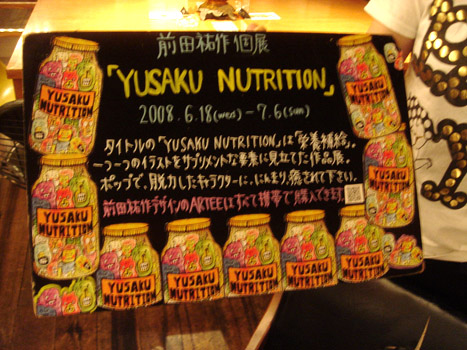 前田祐作個展
「YUSAKU NUTRITION」
2008.6.18(wed) - 7.6(sun)
タイトルの「YUSAKU NUTRITION」は「栄養補給」。
一つ一つのイラストをサプリメントな要素に見立てた作品展。
ポップで、脱力したキャラクターに、にんまり癒されて下さい。
前田祐作デザインのARTEEはすべて携帯で購入できます
YUSAKU NUTRITION
YUSAKU NUTRITION
YUSAKU NUTRITION
YUSAKU NUTRITION
YUSAKU NUTRITION
YUSAKU NUTRITION
YUSAKU NUTRITION
YUSAKU NUTRITION
YUSAKU NUTRITION